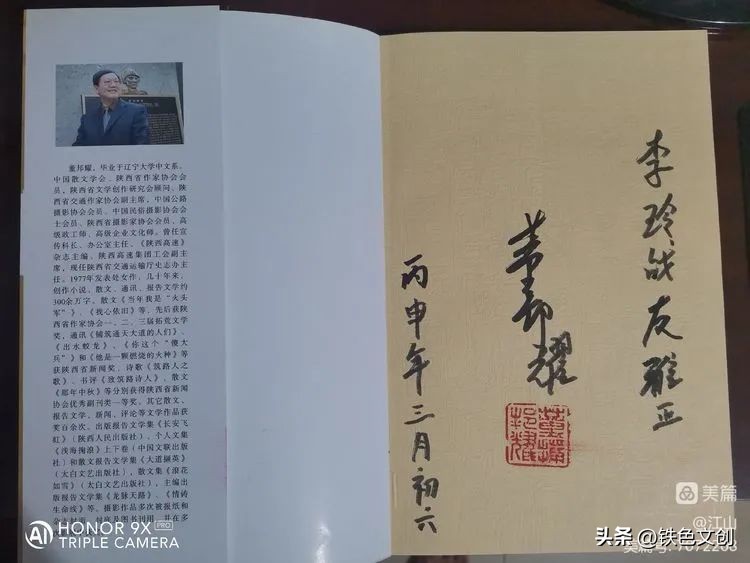 董邦耀，毕业于辽宁大学中文系。
中国散文学会、陕西省作家协会会
员，陕西省文学创作研究会顾问、陕西
省交通作家协会副主席，中国公路
摄影协会会员、中国民俗摄影协会会
士会员、陕西省摄影家协会会员，高
级政工师、高级企业文化师。曾任宣
传科长、办公室主任、《陕西高速》
杂志主编、陕西高速集团工会副主
席，现任陕西省交通运输厅史志办主
任。1977年发表处女作，几十年来，
创作小说、散文、通讯、报告文学约
300余万字。散文《当年我是"火头
军"》、《我心依旧》等，先后获陕
西省作家协会一、二、三届拓荒文学
奖，通讯《铺筑通天大道的人们》、
《出水蛟龙》、《你这个"傻大
兵"》和《他是一颗燃烧的火种》等
获陕西省新闻奖，诗歌《筑路人之
歌》、书评《致筑路诗人》、散文
《那年中秋》等分别获得陕西省新闻
协会优秀副刊类一等奖。其它散文、
报告文学、新闻、评论等文学作品获
奖百余次。出版报告文学集《长安飞
虹》（陕西人民出版社），个人文集
《浅海掬浪》上下卷（中国文联出版
社）和散文报告文学集《大道撷英》
（太白文艺出版社），散文集《浪花
如雪》（太白文艺出版社），主编出
版报告文学集《龙脉天路》、《情铸
生命线》等。摄影作品多次被报纸和
李玲战友雅正
董邦耀
丙申年三月初六
董邦耀
HONOR 9X PRO
AI TRIPLE CAMERA
美篇
@江山
美篇号:7072203
头条 @铁色文创